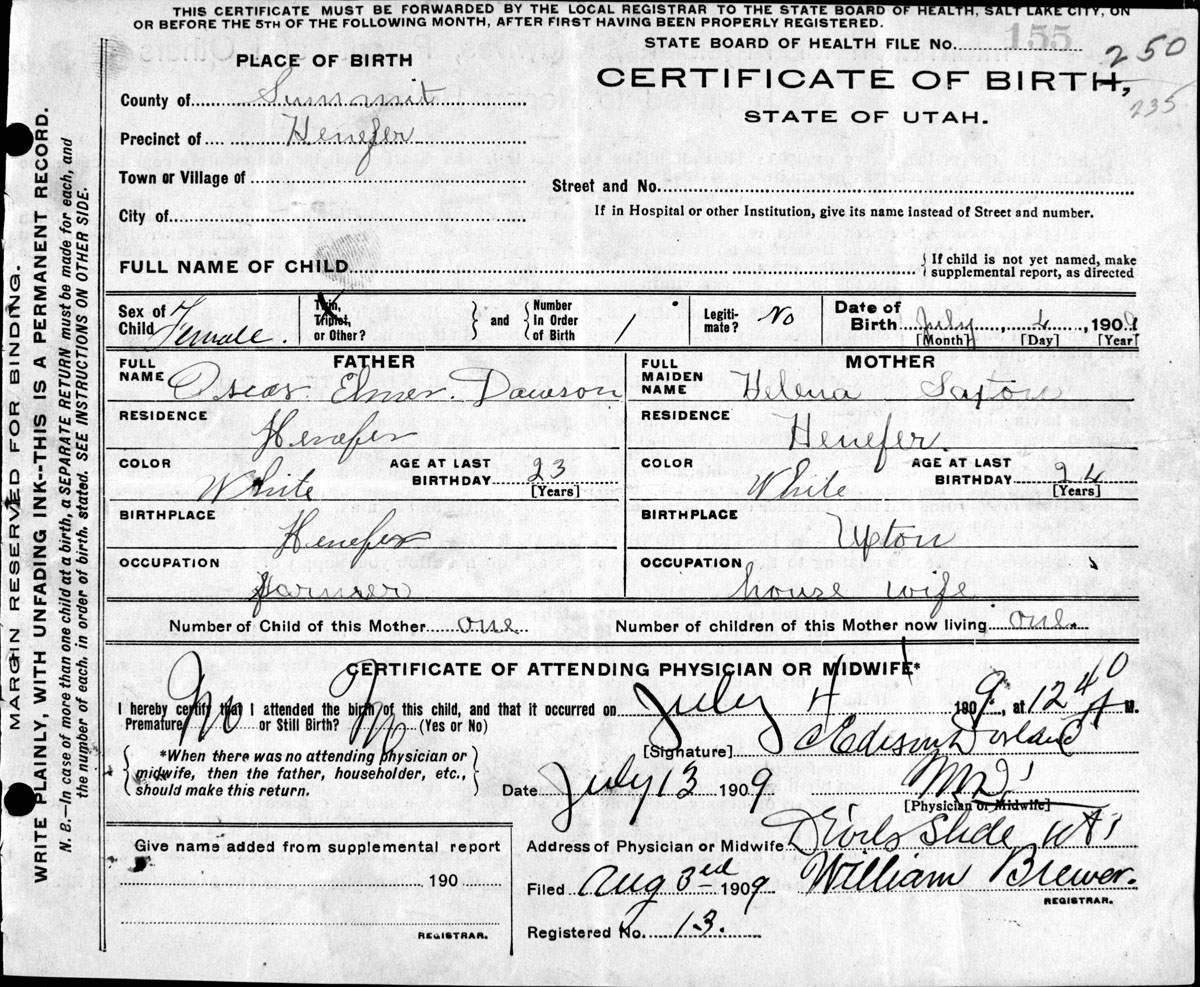 THIS CERTIFICATE MUST BE FORWARDED BY THE LOCAL REGISTRAR TO THE STATE BOARD OF HEALTH, SALT LAKE CITY, ON
OR BEFORE THE 5TH OF THE FOLLOWING MONTH, AFTER FIRST HAVING BEEN PROPERLY REGISTERED.
STATE BOARD OF HEALTH FILE No. 155
250
235
PLACE OF BIRTH
CERTIFICATE OF BIRTH,
STATE OF UTAH.
County of Summit
Precinct of Henefer
Town or Village of
Street and No.
City of
If in Hospital or other Institution, give its name instead of Street and number.
FULL NAME OF CHILD
If child is not yet named, make
supplemental report, as directed
Sex of Child Female.
Twin, Triplet, or Other?
and
Number In Order of Birth 1
Legiti-mate? No
Date of Birth July 4, 1909
[Month] [Day] [Year]
FATHER
MOTHER
FULL NAME Oscar Elmer Dawson
FULL MAIDEN NAME Helena
RESIDENCE Henefer
RESIDENCE Henefer
COLOR White AGE AT LAST BIRTHDAY 23 [Years]
COLOR White AGE AT LAST BIRTHDAY 24 [Years]
BIRTHPLACE Henefer
BIRTHPLACE Upton
OCCUPATION Farmer
OCCUPATION house wife
Number of Child of this Mother one
Number of children of this Mother now living one.
CERTIFICATE OF ATTENDING PHYSICIAN OR MIDWIFE*
I hereby certify that I attended the birth of this child, and that it occurred on July 4 1909, at 12 40 A M.
Premature? No or Still Birth? No (Yes or No)
[Signature] Edison Dorland
*When there was no attending physician or
midwife, then the father, householder, etc.,
should make this return.
Date July 13 1909
M D
[Physician or Midwife]
Give name added from supplemental report
190
REGISTRAR.
Address of Physician or Midwife Devils Slide
Filed Aug 3rd 1909 William Brewer.
REGISTRAR.
Registered No. 13.
MARGIN RESERVED FOR BINDING.
WRITE PLAINLY, WITH UNFADING INK--THIS IS A PERMANENT RECORD.
N. B.—In case of more than one child at a birth, a SEPARATE RETURN must be made for each, and
the number of each, in order of birth, stated. SEE INSTRUCTIONS ON OTHER SIDE.